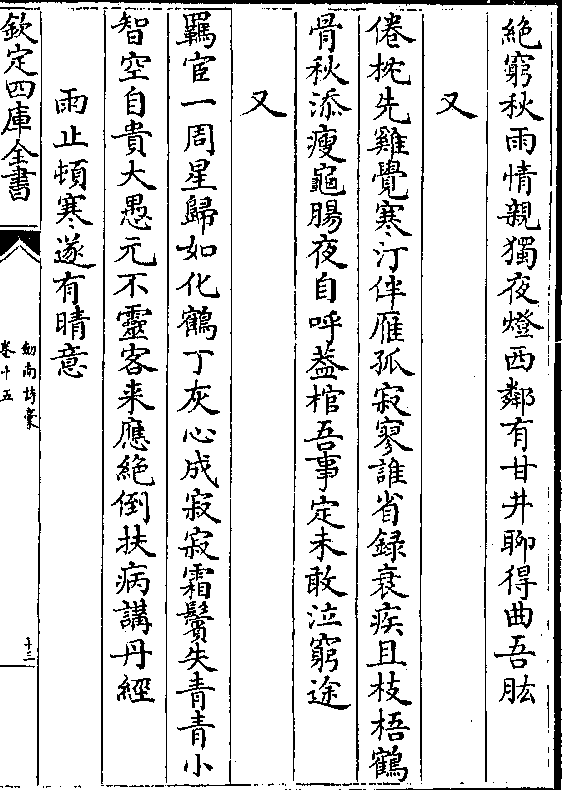 絶窮秋雨情親獨夜燈西鄰有甘井聊得曲吾肱
又
倦枕先雞覺寒汀伴雁孤寂寥誰省録衰疾且枝梧鶴
骨秋添瘦龜腸夜自呼葢棺吾事定未敢泣窮途
又
羈宦一周星歸如化鶴丁灰心成寂寂霜鬢失青青小
智空自貴大愚元不靈客来應絶倒扶病講丹經
雨止頓寒遂有晴意
欽定四庫全書
劒南詩藁
卷十五
十三